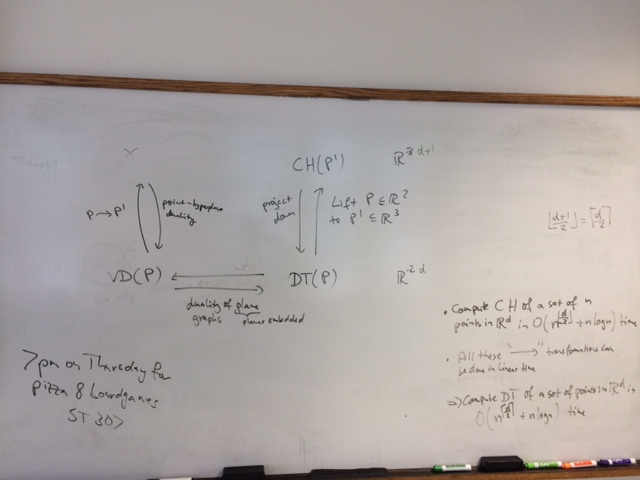 CH(P')
ℝ^3 d+1
P → P'
point-hyperplane
duality
project
down
Lift P ⊆ ℝ^2
to P' ⊆ ℝ^3
⌊(d+1)/2⌋ = ⌈d/2⌉
VD(P)
DT(P)
ℝ^2 d
duality of plane
graphs
planar embedded
• Compute CH of a set of n
points in ℝ^d in O(n^⌊d/2⌋ + n log n) time
• All those "→" transformations can
be done in linear time
⇒ Compute DT of a set of points in ℝ^d in
O(n^⌈d/2⌉ + n log n) time
7pm on Thursday for
pizza & boardgames
ST 307